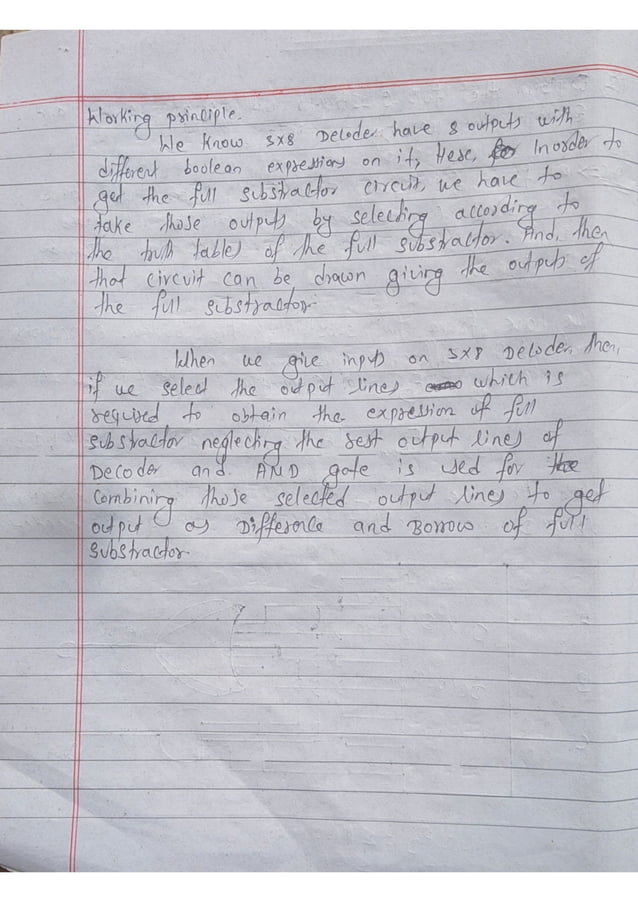 Working principle.
We Know 3x8 Decoder have 8 outputs with
different boolean expressions on it, Here, for Inorder to
get the full substractor circuit, we have to
take those outputs by selecting according to
the truth tables of the full substractor. And, then
that circuit can be drawn giving the outputs of
the full substractor.
When we give inputs on 3x8 Decoder, then,
if we select the output lines which is
required to obtain the expression of full
substractor neglecting the rest output lines of
Decoder and AND gate is used for the
Combining those selected output lines to get
output as Difference and Borrow of full
substractor.